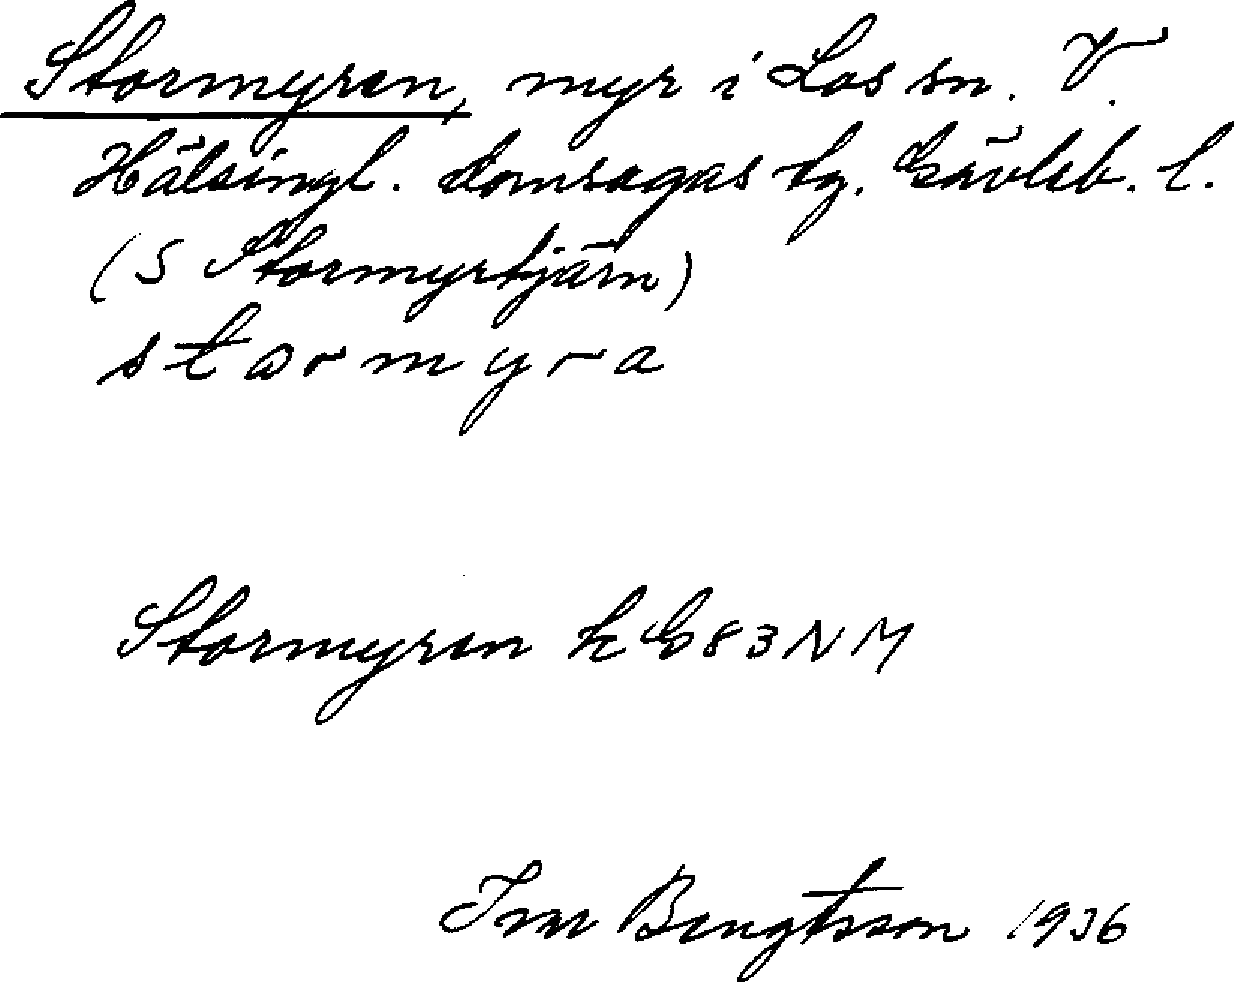 Stormyren, myr i Los sn. V.
Hälsingl. domsagas tg. Gävleb. l.
(S Stormyrtjärn)
stormyra
Stormyren k G 83 NM
Bengtsson 1936